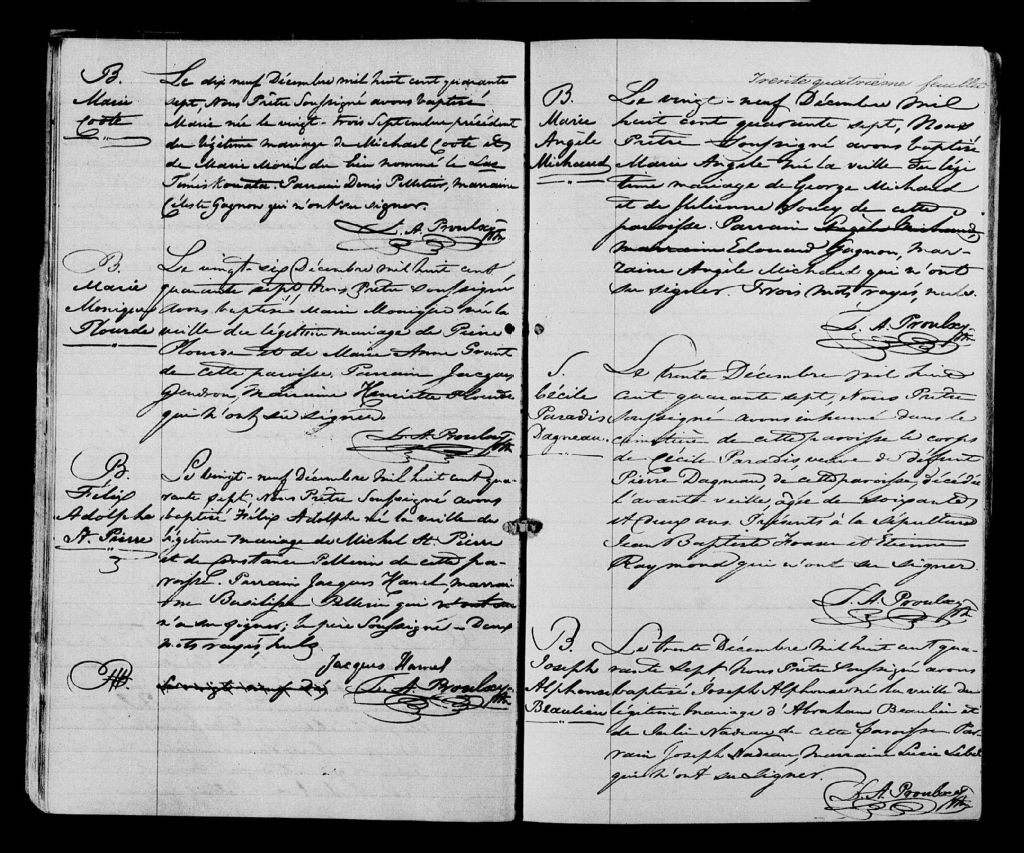 B.
Marie
Coote
Le dix neuf Décembre mil huit cent quarante
sept, Nous Prêtre Soussigné avons baptisé
Marie née le vingt-trois Septembre précédent
du légitime mariage de Michael Coote et
de Marie Morin du lieu nommé le Lac
Témiskouata. Parrain Denis Pelletier, marraine
Céleste Gagnon qui n'ont su signer.
L. A. Proulx Ptr.
B.
Marie
Monique
Plourde
Le vingt-six Décembre mil huit cent
quarante sept, Nous Prêtre Soussigné
avons baptisé Marie Monique née la
veille du légitime mariage de Pierre
Plourde et de Marie Anne Grant
de cette paroisse. Parrain Jacques
Gendron, Marraine Henriette Plourde
qui n'ont su signer
L. A. Proulx Ptr.
B.
Félix
Adolphe
St. Pierre
Le vingt-neuf Décembre mil huit cent qua-
rante sept Nous Prêtre Soussigné avons
baptisé Félix Adolphe né la veille du
légitime mariage de Michel St. Pierre
et de Constance Pellerin de cette pa-
roisse. Parrain Jacques Hamel, marrai-
ne Basilisse Pellerin qui n'ont su
n'a su signer; le père Soussigné - Deux
mots rayés, nuls
Jacques Hamel
L. A. Proulx Ptr.
Le vingt neuf Dé
Trente quatrième feuillet
B.
Marie
Angèle
Michaud
Le vingt-neuf Décembre mil
huit cent quarante sept, Nous
Prêtre Soussigné avons baptisé
Marie Angèle née la veille du légi-
time mariage de George Michaud
et de Julienne Soucy de cette
paroisse. Parrain Angèle Michaud,
marraine Edouard Gagnon, mar-
raine Angèle Michaud qui n'ont
su signer. Trois mots rayés, nuls.
L. A. Proulx Ptr.
S.
Cécile
Paradis
Dagneau
Le trente Décembre mil huit
cent quarante sept, Nous Prêtre
Soussigné avons inhumé dans le
cimetière de cette paroisse le corps
de Cécile Paradis veuve de défunt
Pierre Dagneau, de cette paroisse, décédée
l'avant veille, agée de soixante
et deux ans. Présents à la Sépulture
Jean Baptiste et Etienne
Raymond qui n'ont su signer.
L. A. Proulx Ptr.
B.
Joseph
Alphonse
Beaulieu
Le trente Décembre mil huit cent qua-
rante sept Nous Prêtre Soussigné avons
baptisé Joseph Alphonse né la veille du
légitime mariage d'Abraham Beaulieu et
de Julie Nadeau de cette paroisse Par-
rain Joseph Nadeau, Marraine Lucie Lebel
qui n'ont su signer.
L. A. Proulx Ptr.